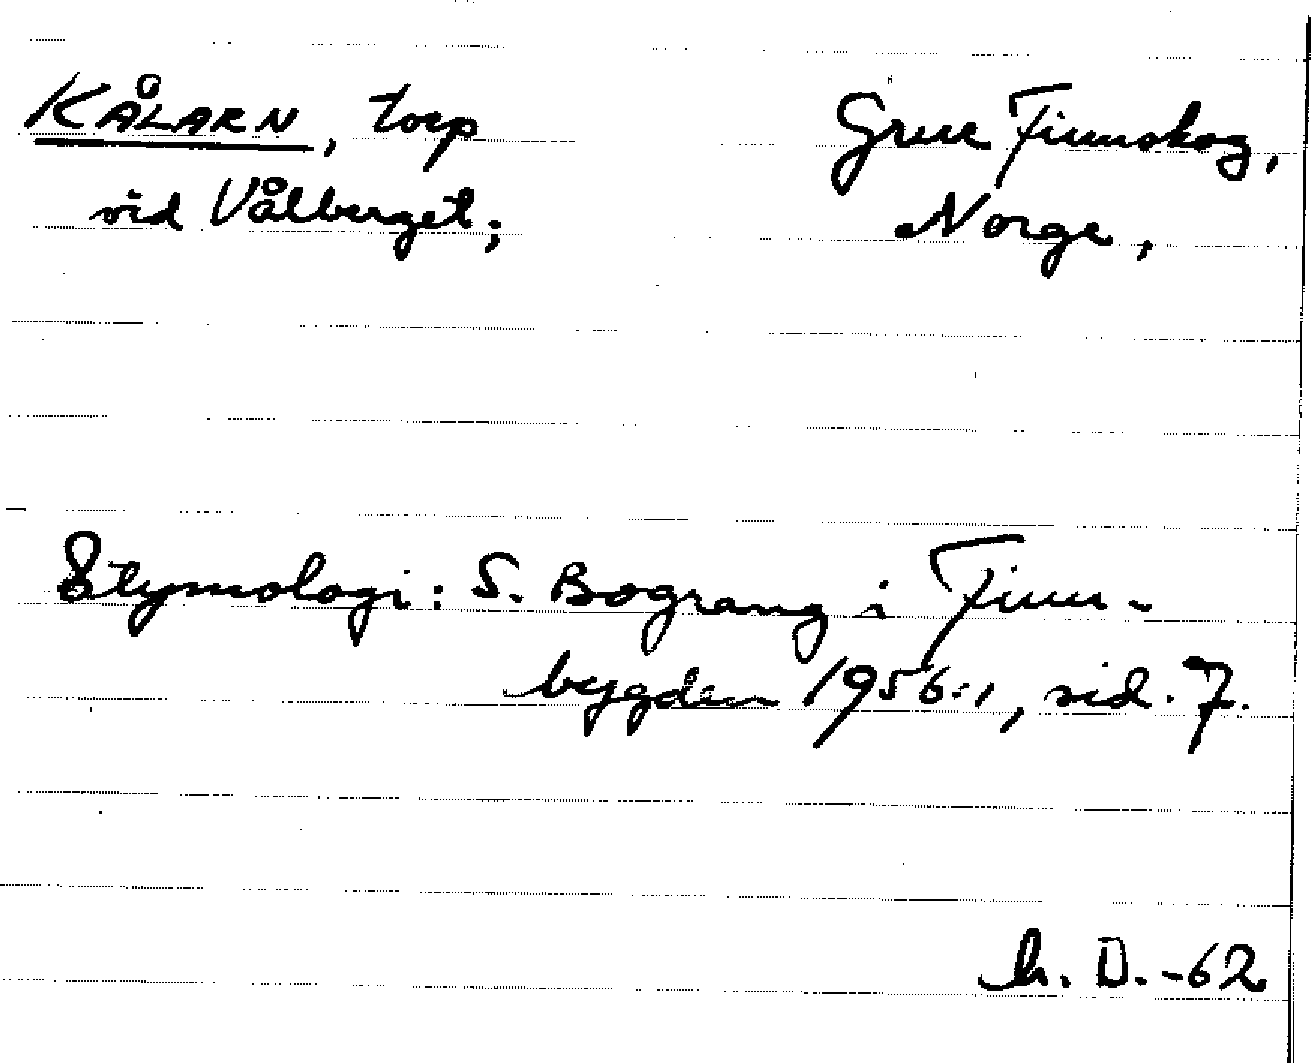 KÅLARN, torp
vid Vålberget;
Grue Finnskog,
Norge,
Etymologi: S. Bograng i Finn-
bygden 1956:1, sid. 7.
h. D. -62